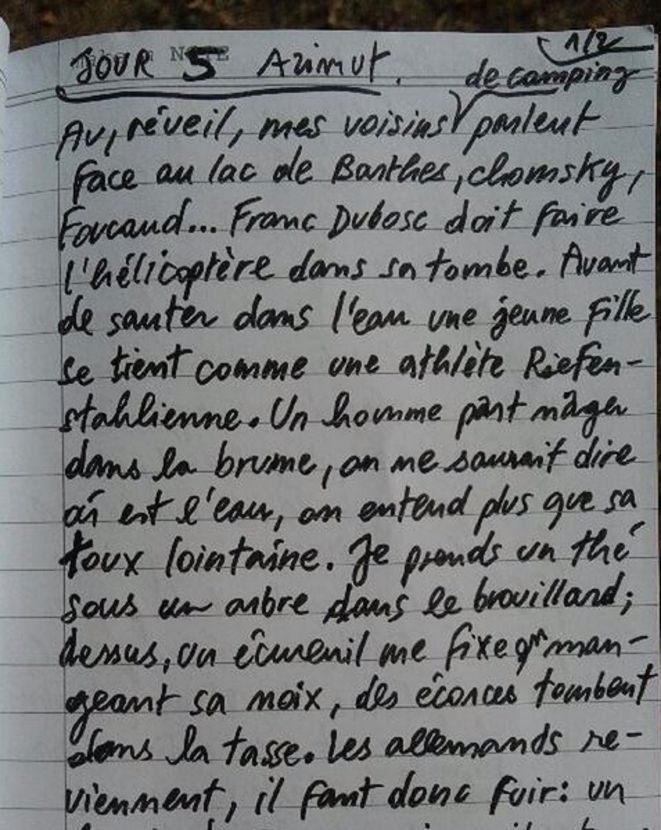 JOUR 5 Azimut. 1/2
de camping
Au, réveil, mes voisins parlent
face au lac de Barthes, chomsky,
Foucaud... Franc Dubosc doit faire
l'hélicoptère dans sa tombe. Avant
de sauter dans l'eau une jeune fille
se tient comme une athlète Riefen-
stahlienne. Un homme part nâger
dans la brume, on ne saurait dire
où est l'eau, on entend plus que sa
toux lointaine. Je prends un thé
sous un arbre dans le brouillard;
dessus, un écureuil me fixe man-
geant sa noix, des écorces tombent
dans la tasse. Les allemands re-
viennent, il faut donc fuir: un